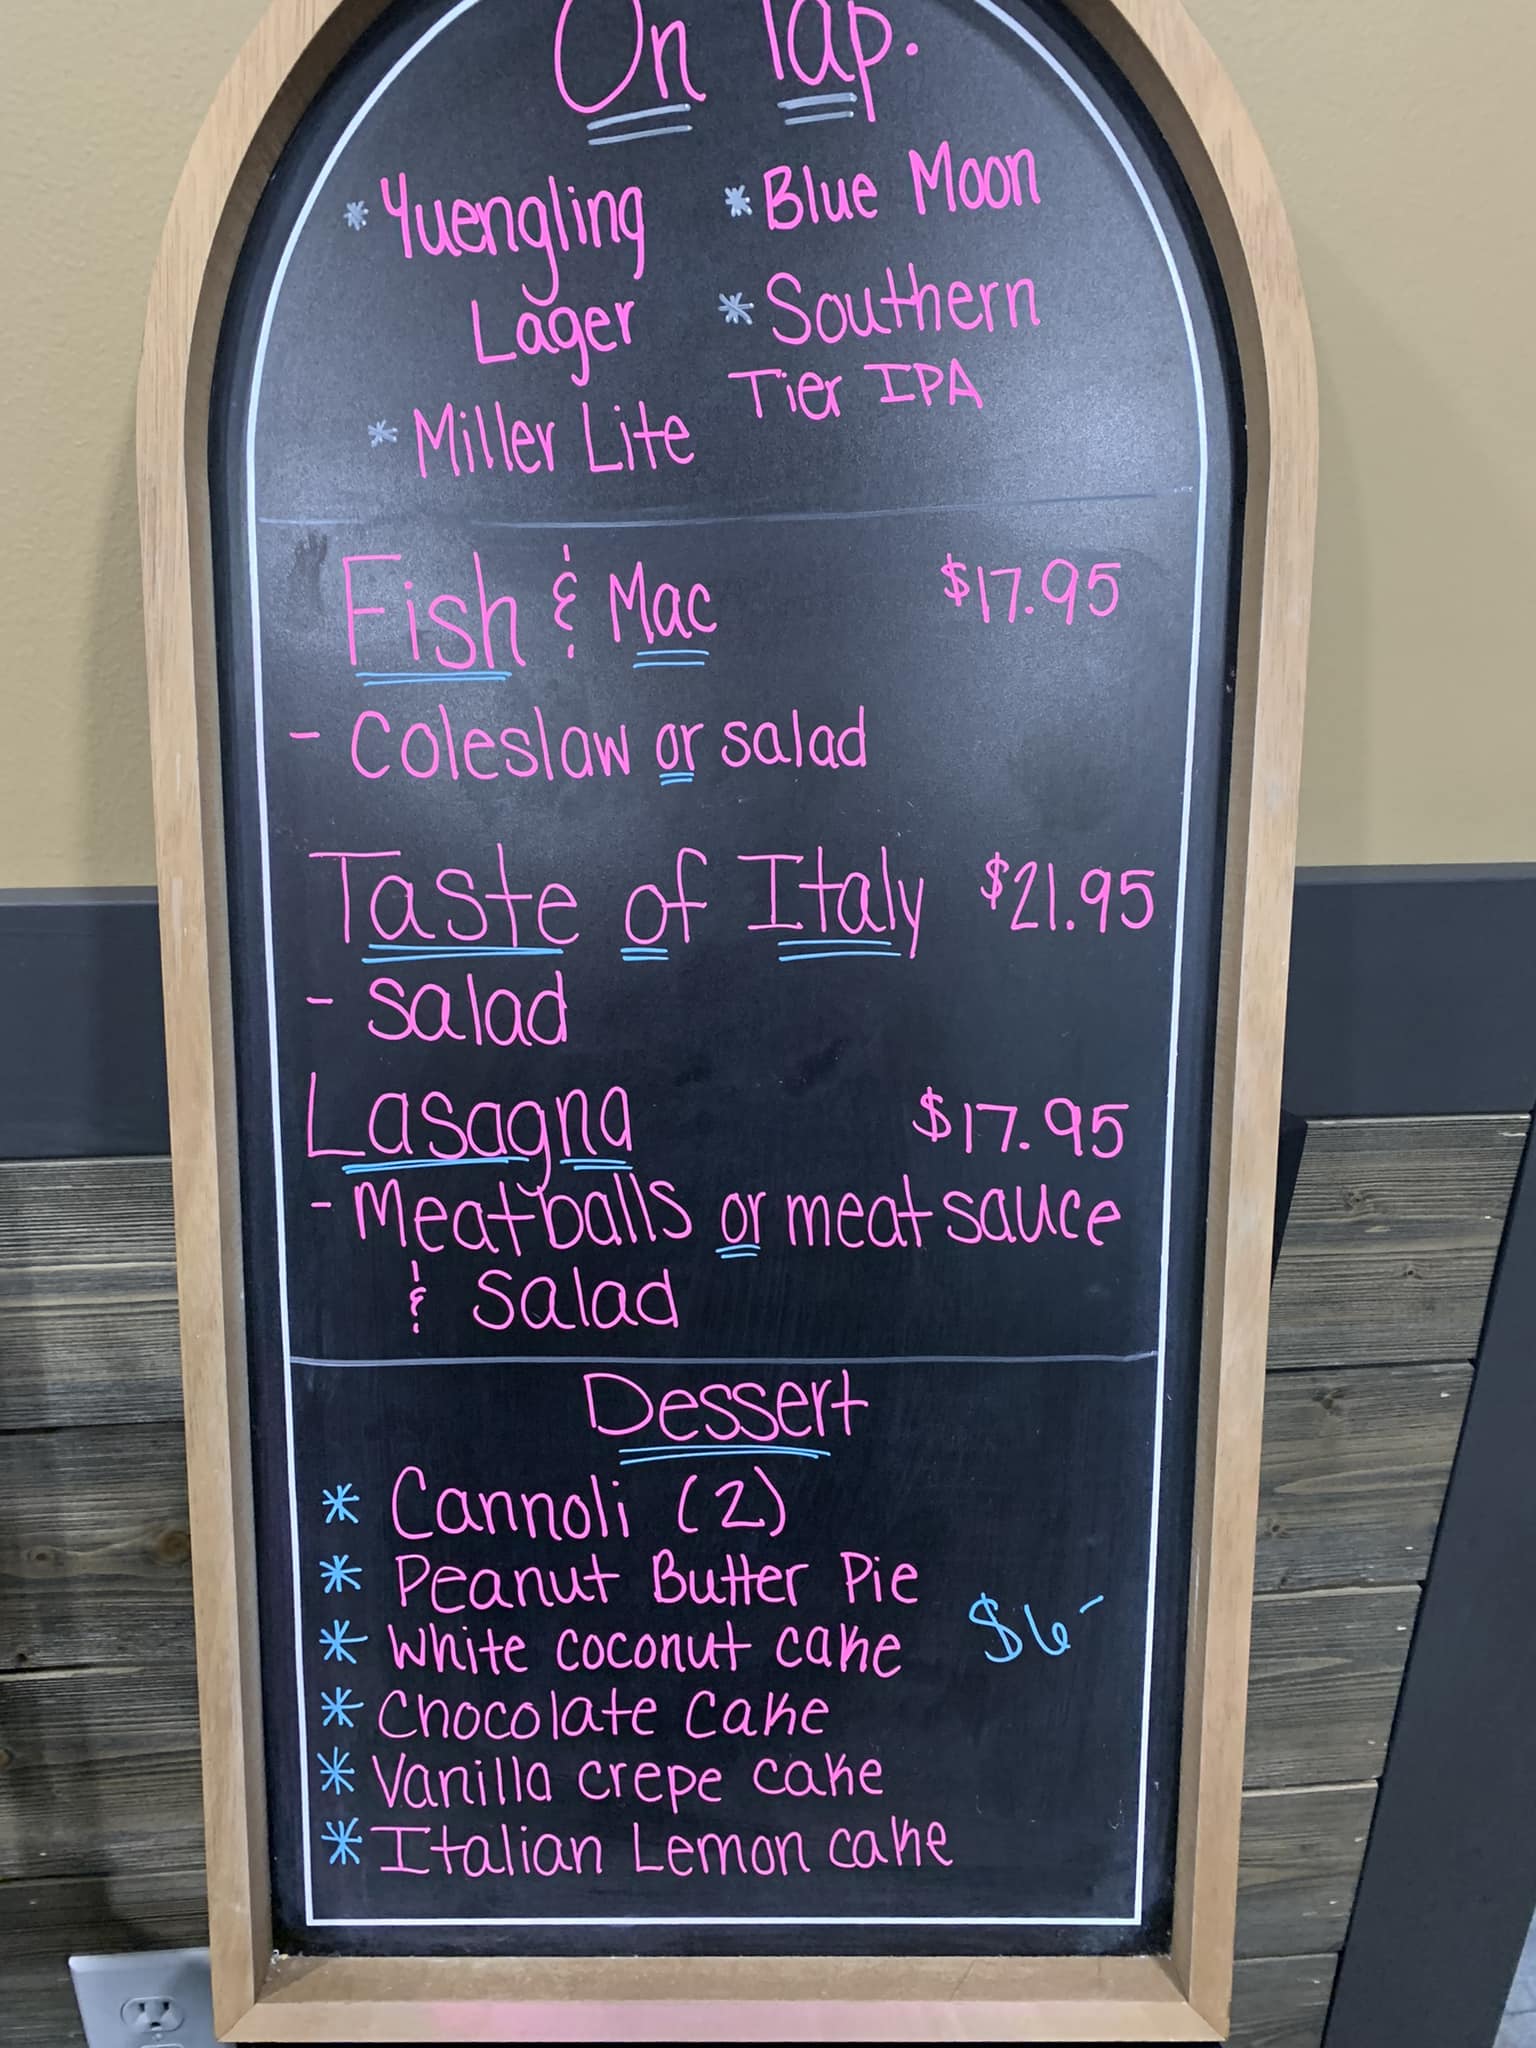 On Tap.
* Yuengling
Lager
* Miller Lite
* Blue Moon
* Southern
Tier IPA
Fish & Mac $17.95
- Coleslaw or salad
Taste of Italy $21.95
- Salad
Lasagna $17.95
- Meatballs or meat sauce
& Salad
Dessert
* Cannoli (2)
* Peanut Butter Pie
* White coconut cake $6-
* Chocolate Cake
* Vanilla crepe cake
* Italian Lemon cake